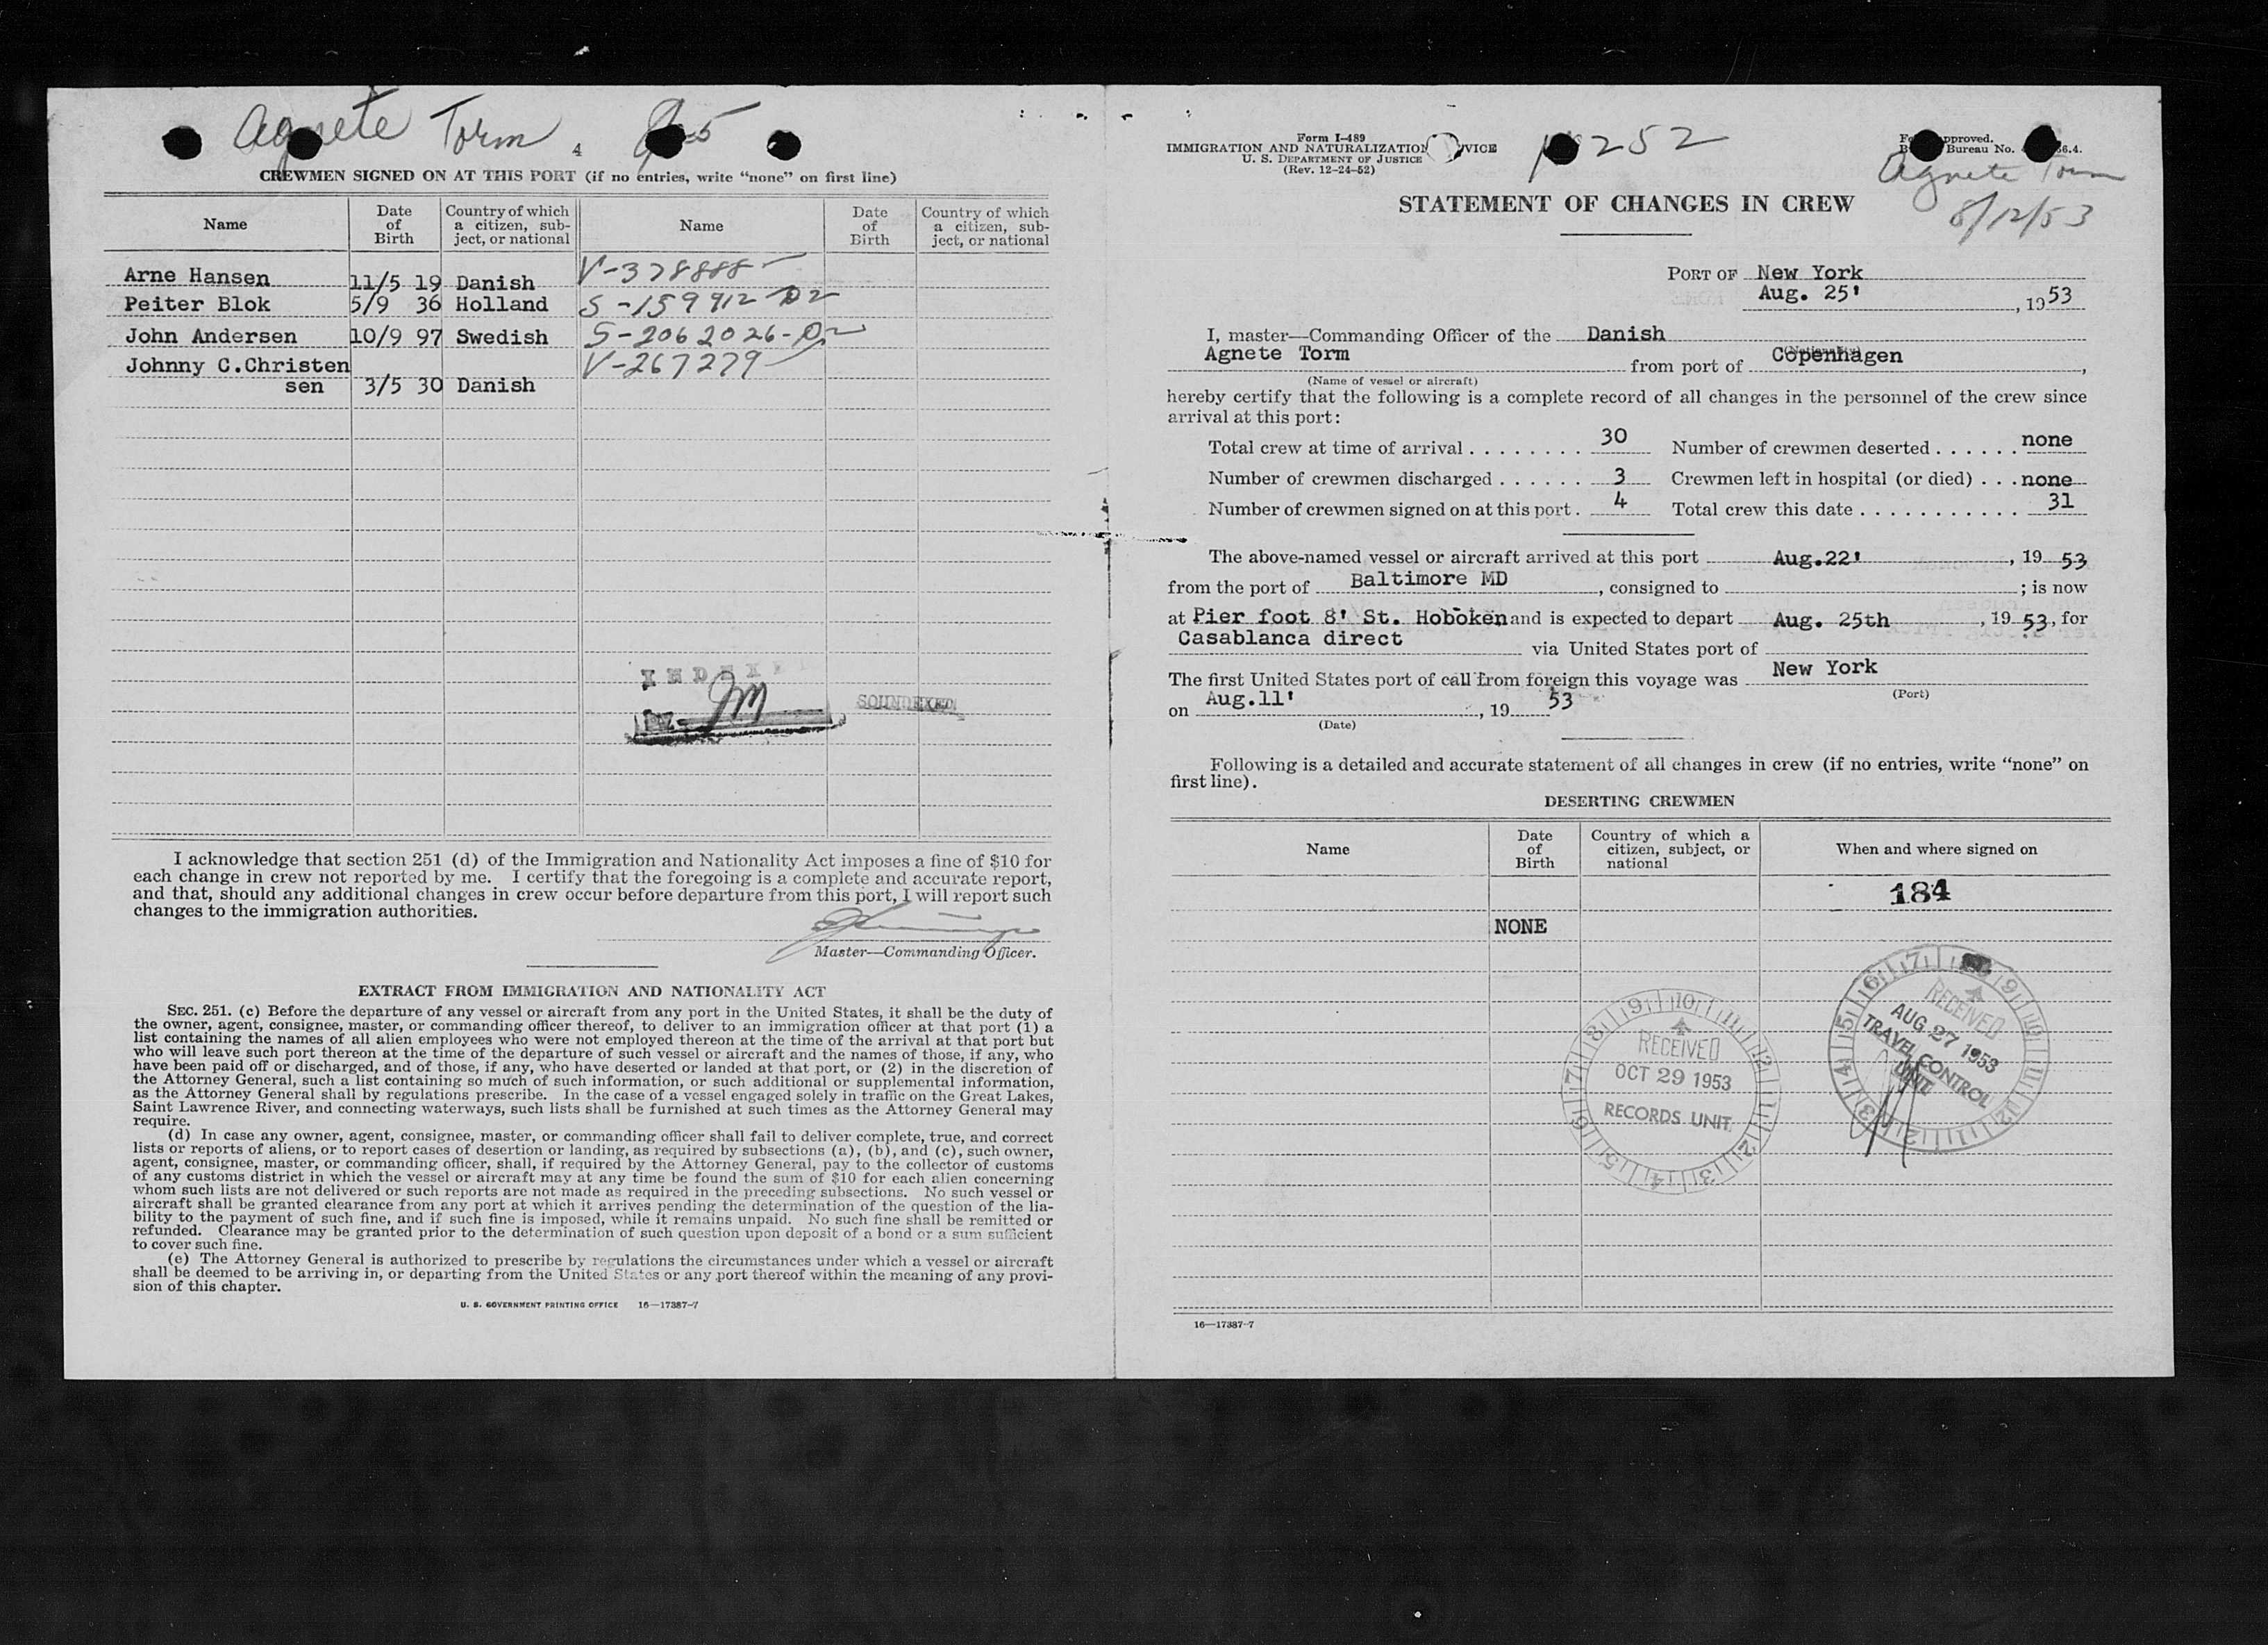 Agnete Torm
4
CREWMEN SIGNED ON AT THIS PORT (if no entries, write “none” on first line)
Name Date of Birth Country of which a citizen, subject, or national Name Date of Birth Country of which a citizen, subject, or national
Arne Hansen 11/5 19 Danish V-378888
Peiter Blok 5/9 36 Holland S-159912 D2
John Andersen 10/9 97 Swedish S-2062026-D2
Johnny C.Christen V-267279
sen 3/5 30 Danish
SOUNDEXED
I acknowledge that section 251 (d) of the Immigration and Nationality Act imposes a fine of $10 for
each change in crew not reported by me. I certify that the foregoing is a complete and accurate report,
and that, should any additional changes in crew occur before departure from this port, I will report such
changes to the immigration authorities.
Master—Commanding Officer.
EXTRACT FROM IMMIGRATION AND NATIONALITY ACT
SEC. 251. (c) Before the departure of any vessel or aircraft from any port in the United States, it shall be the duty of
the owner, agent, consignee, master, or commanding officer thereof, to deliver to an immigration officer at that port (1) a
list containing the names of all alien employees who were not employed thereon at the time of the arrival at that port but
who will leave such port thereon at the time of the departure of such vessel or aircraft and the names of those, if any, who
have been paid off or discharged, and of those, if any, who have deserted or landed at that port, or (2) in the discretion of
the Attorney General, such a list containing so much of such information, or such additional or supplemental information,
as the Attorney General shall by regulations prescribe. In the case of a vessel engaged solely in traffic on the Great Lakes,
Saint Lawrence River, and connecting waterways, such lists shall be furnished at such times as the Attorney General may
require.
(d) In case any owner, agent, consignee, master, or commanding officer shall fail to deliver complete, true, and correct
lists or reports of aliens, or to report cases of desertion or landing, as required by subsections (a), (b), and (c), such owner,
agent, consignee, master, or commanding officer, shall, if required by the Attorney General, pay to the collector of customs
of any customs district in which the vessel or aircraft may at any time be found the sum of $10 for each alien concerning
whom such lists are not delivered or such reports are not made as required in the preceding subsections. No such vessel or
aircraft shall be granted clearance from any port at which it arrives pending the determination of the question of the lia-
bility to the payment of such fine, and if such fine is imposed, while it remains unpaid. No such fine shall be remitted or
refunded. Clearance may be granted prior to the determination of such question upon deposit of a bond or a sum sufficient
to cover such fine.
(e) The Attorney General is authorized to prescribe by regulations the circumstances under which a vessel or aircraft
shall be deemed to be arriving in, or departing from the United States or any port thereof within the meaning of any provi-
sion of this chapter.
U. S. GOVERNMENT PRINTING OFFICE 16—17387-7
Form I-489
IMMIGRATION AND NATURALIZATION SERVICE
U. S. DEPARTMENT OF JUSTICE
(Rev. 12-24-52)
252
Agnete Torm
8/12/53
STATEMENT OF CHANGES IN CREW
PORT OF New York
Aug. 25' , 1953
I, master—Commanding Officer of the Danish
(Nationality)
Agnete Torm from port of Copenhagen,
(Name of vessel or aircraft)
hereby certify that the following is a complete record of all changes in the personnel of the crew since
arrival at this port:
Total crew at time of arrival 30 Number of crewmen deserted none
Number of crewmen discharged 3 Crewmen left in hospital (or died) none
Number of crewmen signed on at this port 4 Total crew this date 31
The above-named vessel or aircraft arrived at this port Aug.22', 19 53
from the port of Baltimore MD, consigned to ; is now
at Pier foot 8' St. Hoboken and is expected to depart Aug. 25th, 19 53, for
Casablanca direct via United States port of
The first United States port of call from foreign this voyage was New York
(Port)
on Aug.11', 19 53
(Date)
Following is a detailed and accurate statement of all changes in crew (if no entries, write “none” on
first line).
DESERTING CREWMEN
Name Date of Birth Country of which a citizen, subject, or national When and where signed on
184
NONE
RECEIVED
AUG 27 1953
TRAVEL CONTROL
UNIT
RECEIVED
OCT 29 1953
RECORDS UNIT
16—17387-7